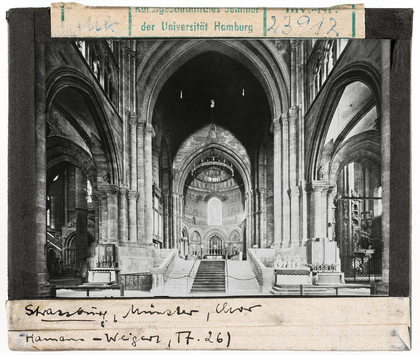 Kunstgeschichtliches Seminar
der Universität Hamburg
23917
Strassburg, Münster, Chor
Hamann-Weigert, (T. 26)